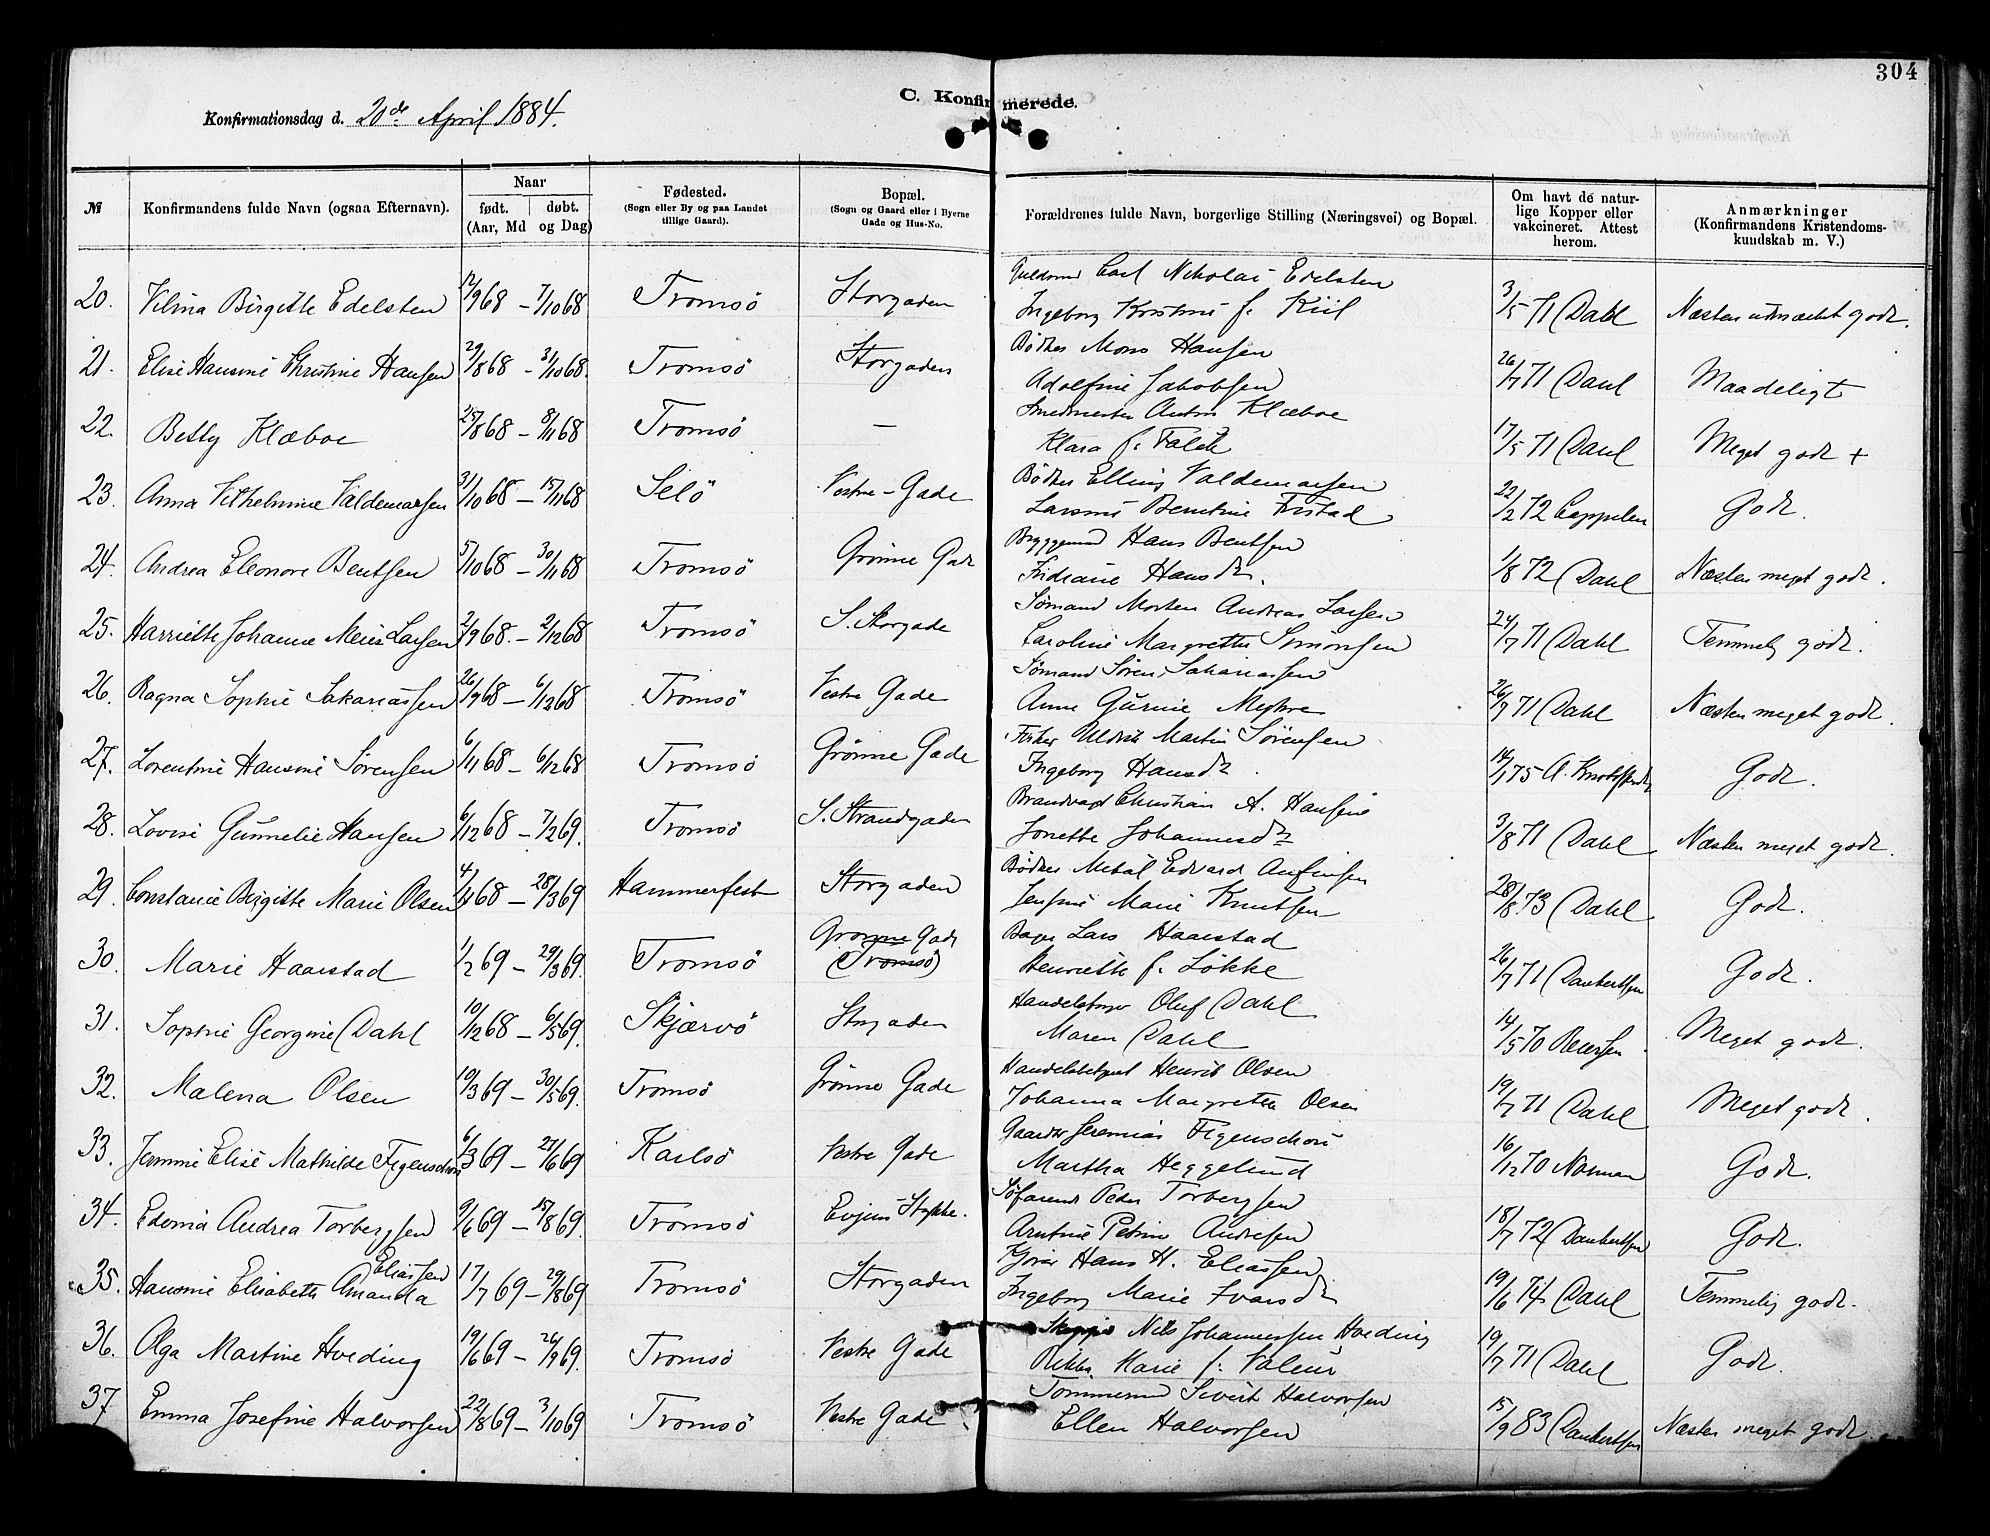 304
C. Konfirmerede.
Konfirmationsdag d. 20de April 1884.
№
Konfirmandens fulde Navn (ogsaa Efternavn).
Naar
født. døbt.
(Aar, Md og Dag)
Fødested.
(Sogn eller By og paa Landet
tillige Gaard).
Bopæl.
(Sogn og Gaard eller i Byerne
Gade og Hus-No.
Forældrenes fulde Navn, borgerlige Stilling (Næringsvei) og Bopæl.
Om havt de natur-
lige Kopper eller
vakcineret. Attest
herom.
Anmærkninger
(Konfirmandens Kristendoms-
kundskab m. V.)
Carl Nikolai Edelsten
20. Vilma Birgitte Edelsten 12/9 68 - 7/10 68 Tromsö Storgaden Ingeborg f. Kiil 3/5 71 Dahl Næsten udmærket godt.
Bödker Mons Hansen
21. Elise Hansine Christine Hansen 29/8 68 - 31/10 68. Tromsö Storgaden Adolfine Jakobsen 26/7 71 Dahl Maadeligt
Smedmester Anton Klæboe
22. Betty Klæboe 25/8 68 - 8/11 68 Tromsö — Klara f. Falck 17/5 71 Dahl Meget godt +
Bödker Elling Valdemarsen
23. Anna Vilhelmine Valdemarsen 31/10 68 - 15/11 68 Selö Vestre-Gade Larsine Berntine 22/2 72 Cappelen Godt.
Hans Bentsen
24. Andrea Eleonore Bentsen 5/10 68 - 30/11 68 Tromsö Grönne Gade Hansdr. 1/8 72 Dahl Næsten meget godt.
Sömand Morten Andreas Larsen
25. Harriette Johanne Larsen 2/9 68. - 2/12 68 Tromsö S. Storgade Caroline Margrethe Simonsen 24/7 71 Dahl Temmelig godt.
Sömand Sören Sakariassen
26. Ragna Sophie Sakariassen 26/9 68 - 6/12 68 Tromsö Vestre Gade Anne 26/7 71 Dahl Næsten meget godt.
Fisker Ulrik Martin Sörensen
27. Lorentine Hansine Sörensen 6/11 68 - 6/12 68 Tromsö Grönne Gade Ingeborg Hansdr. 14/1 75 A. Godt.
Brandvagt Christian A. Hansen
28. Lovise Gunnelie Hansen 6/12 68 - 7/2 69. Tromsö S. Strandgaden Jonette Johannesdr 3/8 71 Dahl Næsten meget godt.
Bödker Edvard
29. Constance Birgitte Marie Olsen 4/11 68 - 28/3 69 Hammerfest Storgaden Jensine Marie Knutsen 28/8 73 Dahl Godt.
Bager Lars Haarstad
30. Marie Haarstad 1/2 69 - 29/3 69. Tromsö Grönne Gade (Tromsö) Henriette f. Lökke 26/7 71 Daubertsen Godt.
Oluf Dahl
31. Sophie Georgine Dahl 10/12 68 - 6/5 69. Skjærvö Storgaden Maren Dahl 14/5 70 Meget godt.
Handelsbetjent Henrik Olsen
32. Malena Olsen 10/3 69 - 30/5 69. Tromsö Grönne Gade Johanna Margrethe Olsen 19/7 71 Dahl Meget godt.
Jeremias Figenschou
33. Jemmi Elise Mathilde Figenschou 6/3 69 - 27/6 69 Karlsö Vestre Gade Martha Heggelund 16/12 70 Norman Godt.
Söfarende Peder Torbergsen
34. Edonia Andrea Torbergsen 9/6 69 - 15/8 69. Tromsö Stykke. Petrine Andresen 18/7 72 Daubertsen Godt.
Eliassen Hans H. Eliassen
35. Hansine Elisabeth Amanda 17/7 69 - 29/8 69 Tromsö Storgaden Ingeborg Marie Ivarsdr 19/6 74 Dahl Temmelig godt.
Nils Johannessen Hveding
36. Olga Martine Hveding 19/6 69 - 26/9 69. Tromsö Vestre Gade Rikke Marie f. Valeur 19/7 71 Dahl Godt.
Tömmermd Sivert Halvorsen
37 Emma Josefine Halvorsen 22/8 69 - 3/10 69 Tromsö Vestre Gade Ellen Halvorsen 15/9 83 Daubertsen Næsten meget godt.